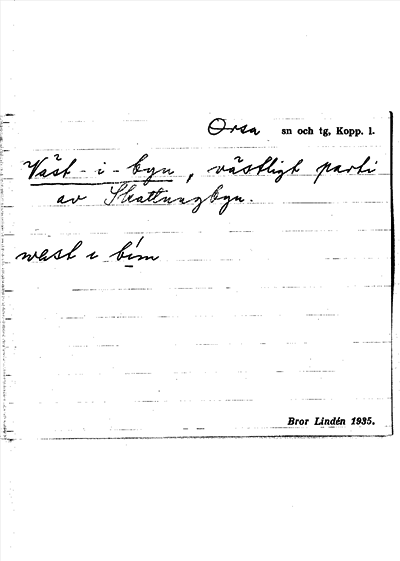 Orsa sn och tg, Kopp. l.
Väst-i-byn, västligt parti
av Skattungbyn.
west i bím
Bror Lindén 1935.